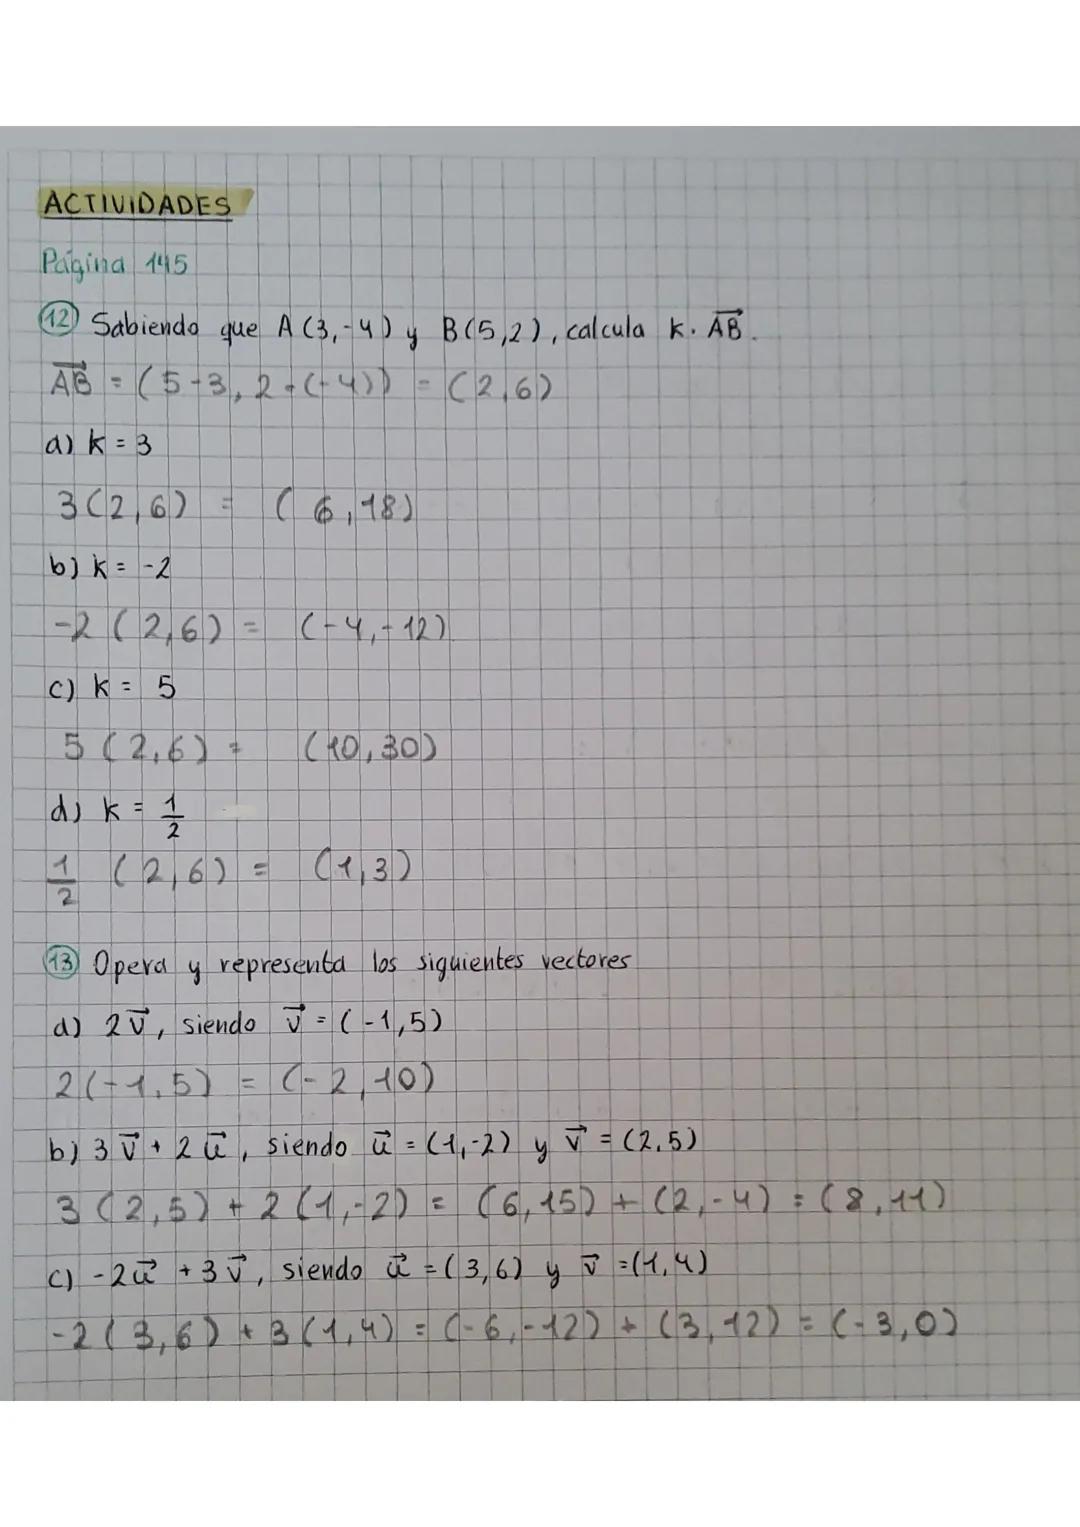 ACTIVIDADES
Página 145
12 Sabiendo que A (3,-4) y B(5,2), calcula k. \overrightarrow{AB}.
\overrightarrow{AB} = (5-3, 2-(-4)) = (2,6)
a) k = 3
3(2,6) = (6,18)
b) k = -2
-2 (2,6) = (-4,-12)
c) k = 5
5 (2,6) = (10,30)
d) k = 1/2
1/2 (2,6) = (1,3)
13 Opera y representa los siguientes vectores
a) 2v⃗, siendo v⃗ = (-1,5)
2(-1,5) = (-2,10)
b) 3v⃗ + 2u⃗, siendo u⃗ = (1,-2) y v⃗ = (2,5)
3 (2,5) + 2 (1,-2) = (6,15) + (2,-4) = (8,11)
c) -2u⃗ + 3v⃗, siendo u⃗ = (3,6) y v⃗ = (1,4)
-2 (3,6) + 3 (1,4) = (-6,-12) + (3,12) = (-3,0)